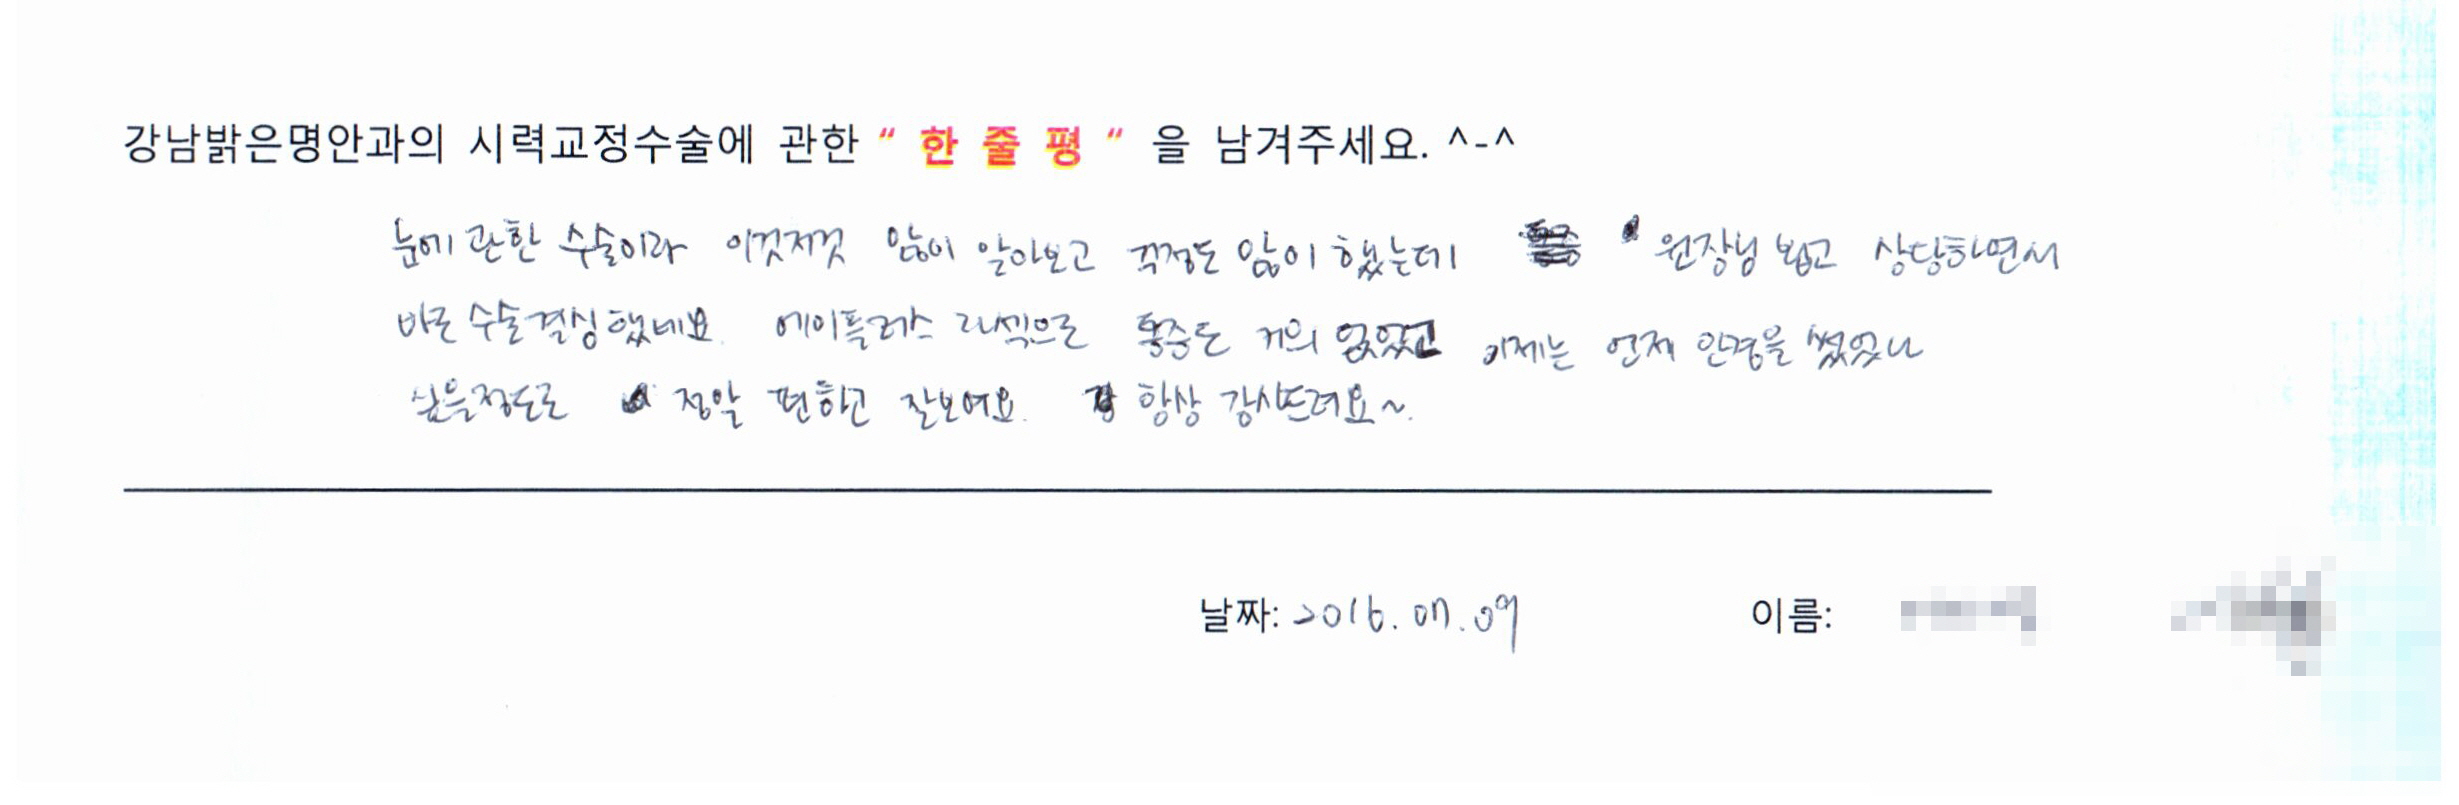 강남밝은명안과의 시력교정수술에 관한 " 한 줄 평 " 을 남겨주세요. ^-^
눈에 관한 수술이라 이것저것 많이 알아보고 걱정도 많이 했는데 원장님 뵙고 상담하면서
바로 수술결심했네요. 에이플러스 라섹으로 통증도 거의 없었고 이제는 언제 안경을 썼었나
싶을정도로 정말 편하고 잘보여요. 항상 감사드려요~.
날짜: 2016. 07. 09 이름: